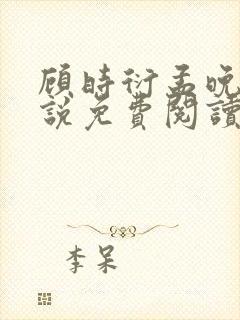 顾时衍孟晚
説免費閱讀
李呆